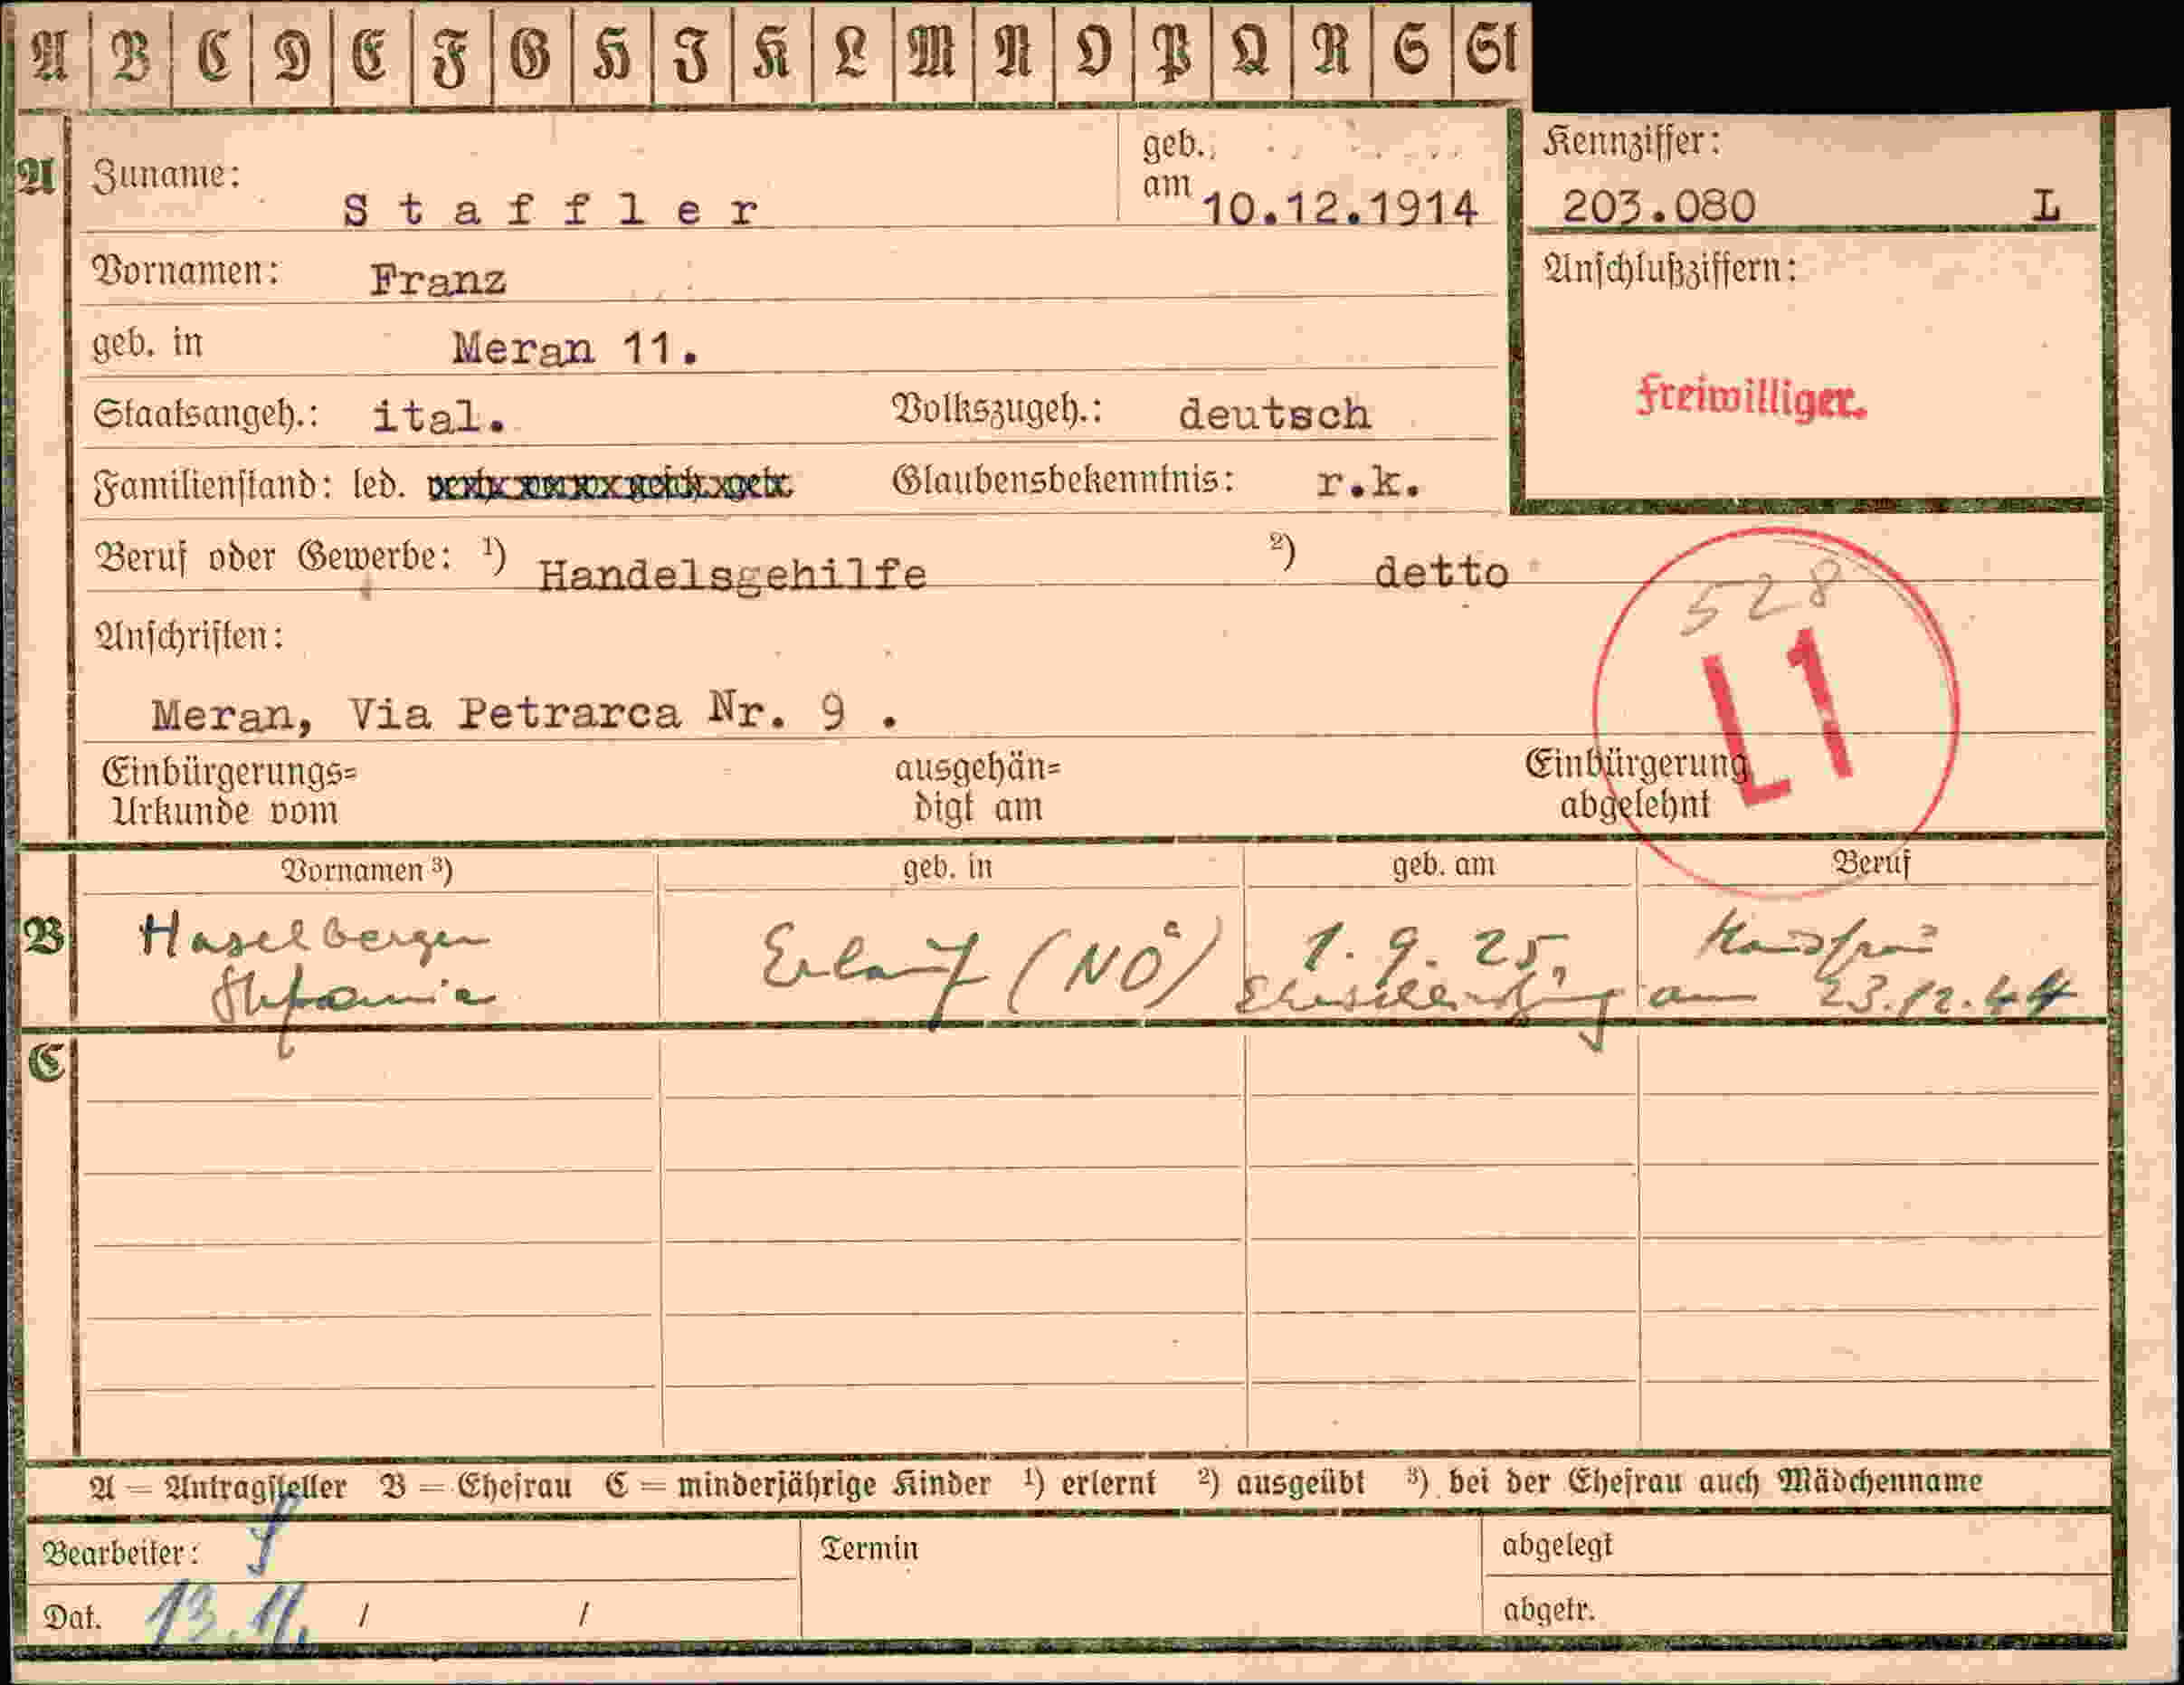 A B C D E F G H I K L M N O P Q R S St
A
Zuname: Staffler
geb. am 10.12.1914
Kennziffer: 203.080 L
Vornamen: Franz
Anschlußziffern:
geb. in Meran 11.
Freiwilliger.
Staatsangeh.: ital. Volkszugeh.: deutsch
Familienstand: led. Glaubensbekenntnis: r.k.
Beruf oder Gewerbe: ¹) Handelsgehilfe ²) detto
528
L1
Anschriften:
Meran, Via Petrarca Nr. 9 .
Einbürgerungs=
Urkunde vom
ausgehän=
digt am
Einbürgerung
abgelehnt
Vornamen ³) geb. in geb. am Beruf
B
Haselberger Erlauf (NÖ) 1. 9. 25, Hausfrau
Stefanie Eheschließung am 23.12.44
C
A = Antragsteller B = Ehefrau C = minderjährige Kinder ¹) erlernt ²) ausgeübt ³) bei der Ehefrau auch Mädchenname
Bearbeiter: Termin abgelegt
Dat. 13.11. / / abgetr.